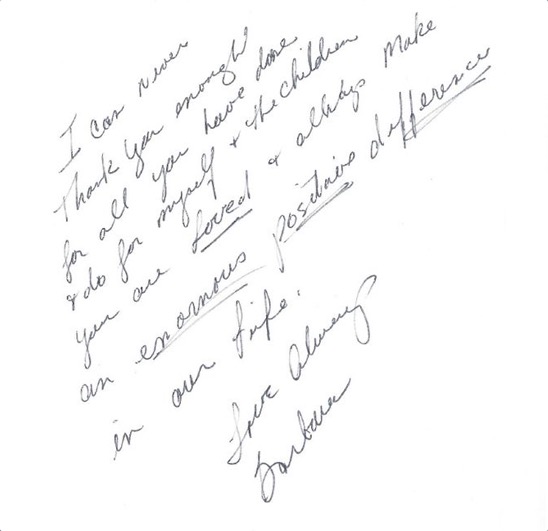 I can never
Thank you enough
for all you have done
& do for myself & the children
you are loved & always make
an enormous positive difference
in our life.
Love Always
Barbara